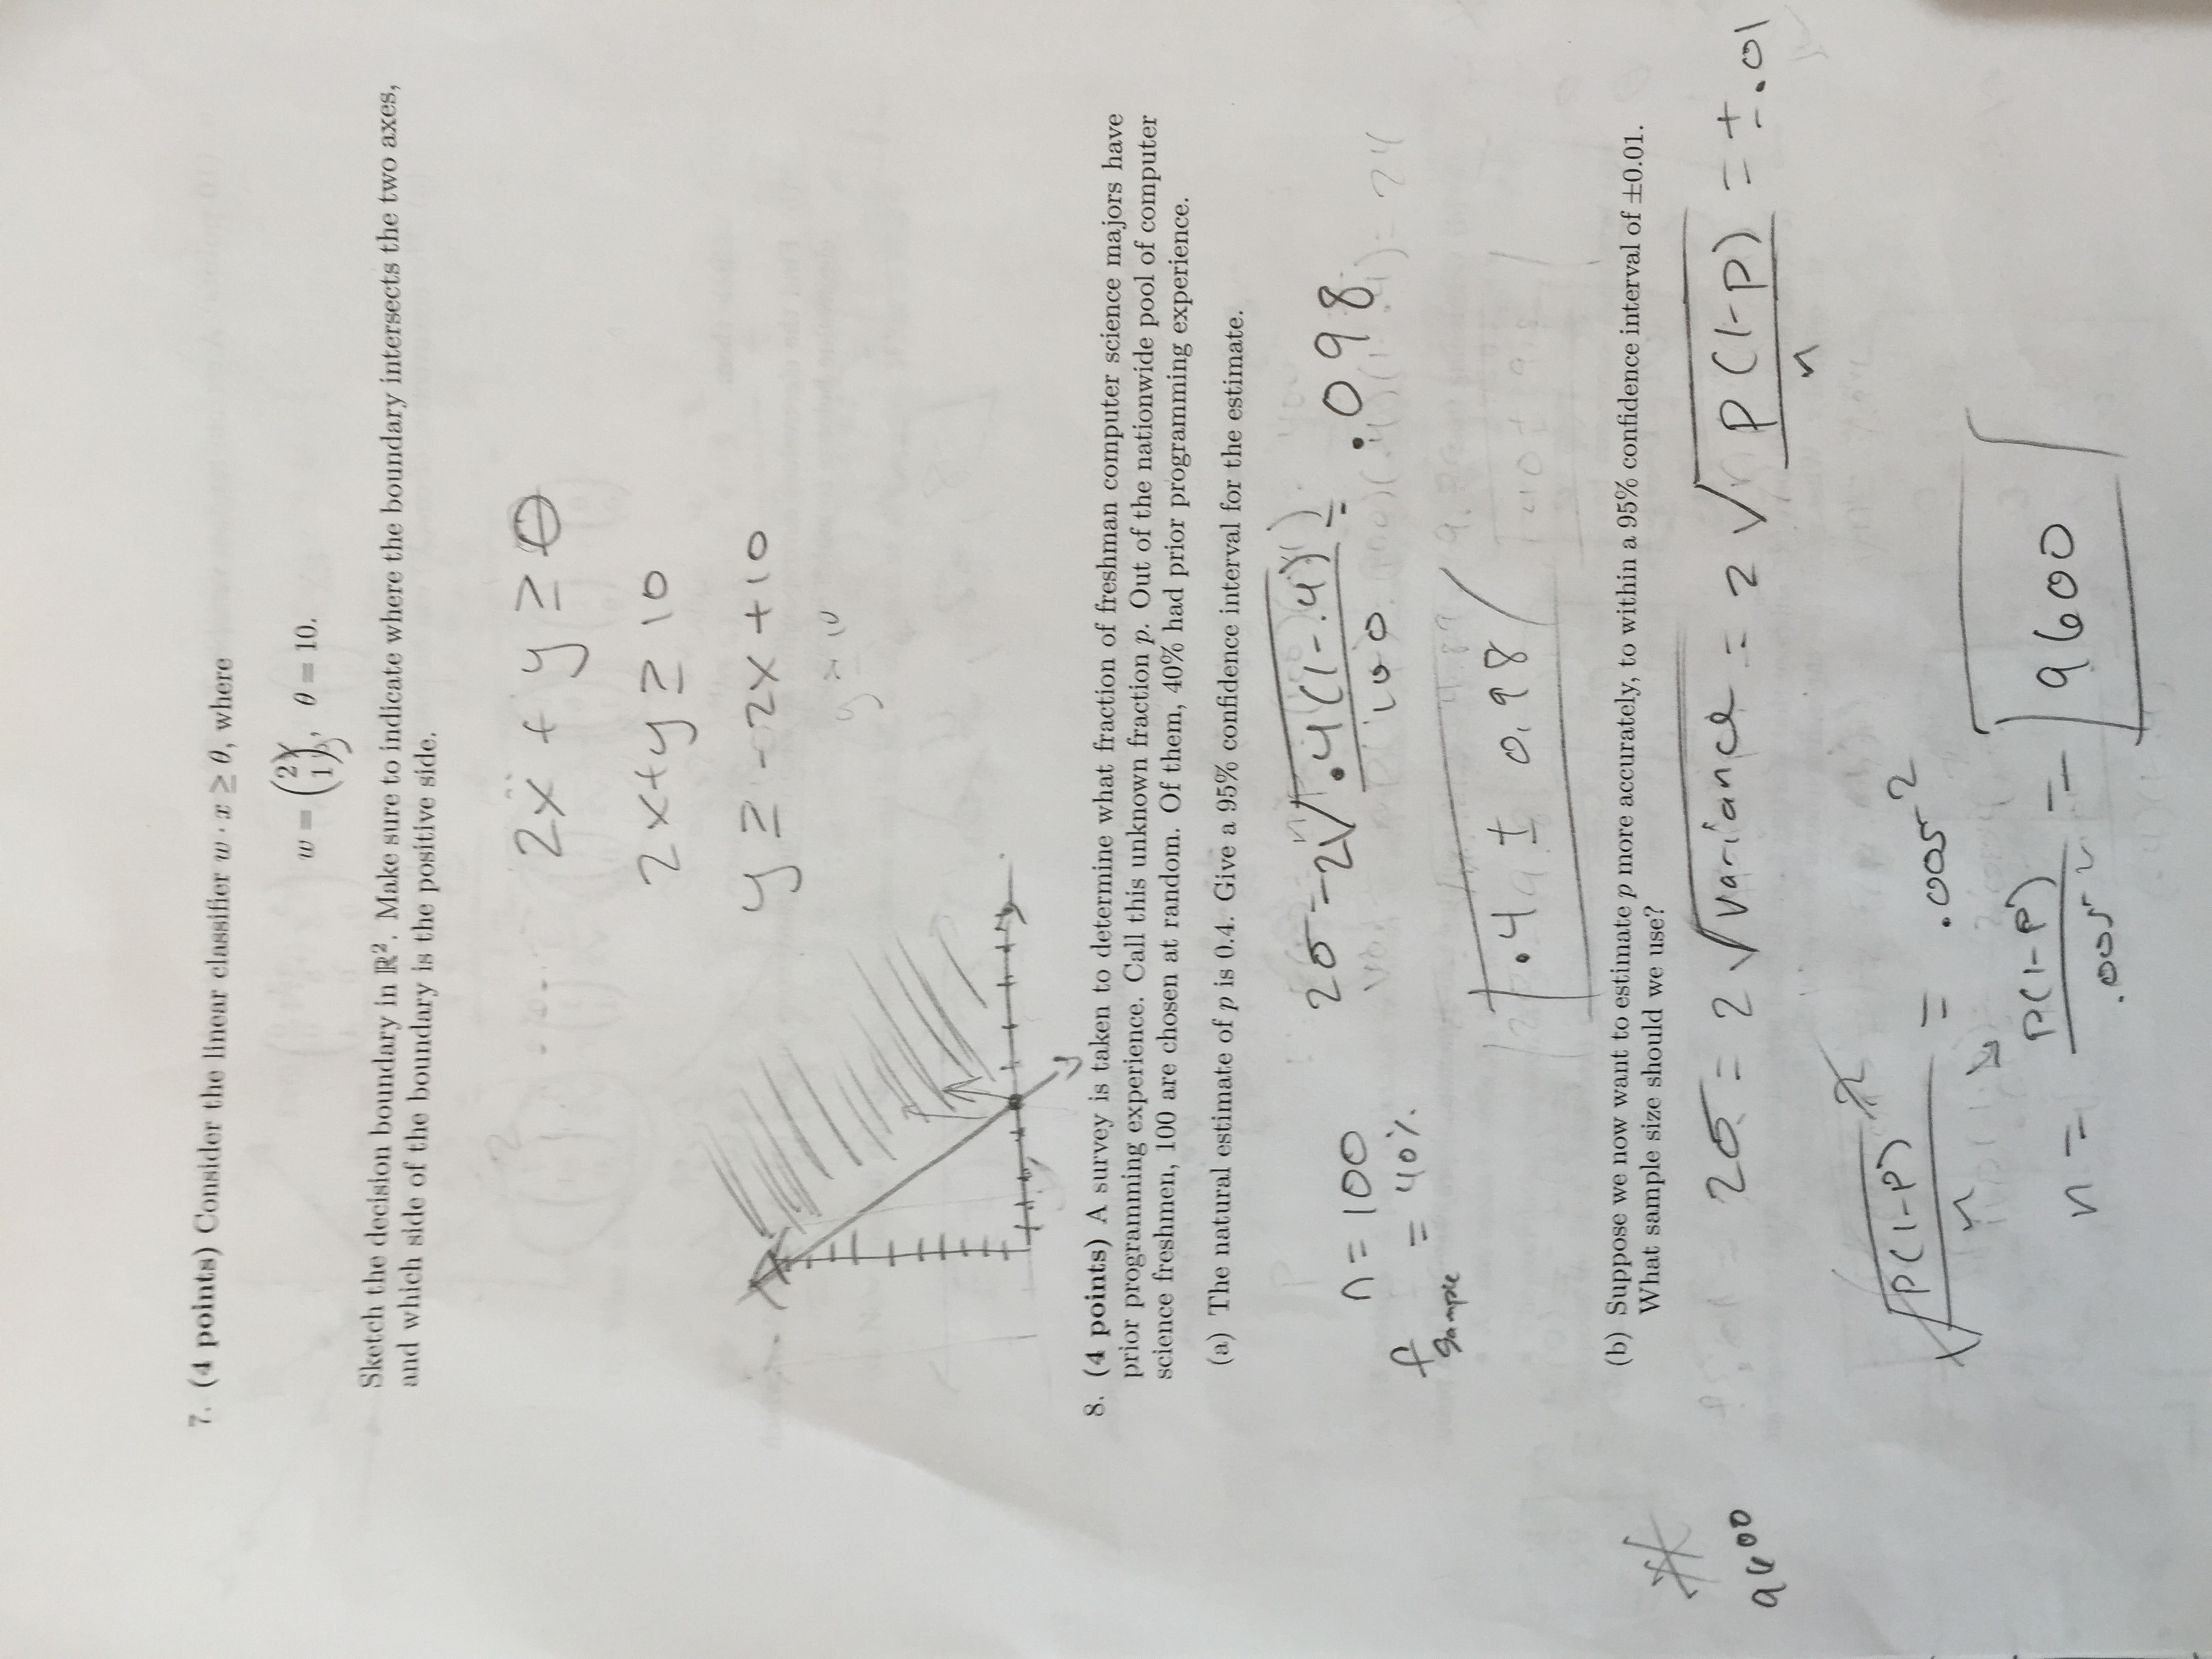 7. (4 points) Consider the linear classifier w · x ≥ θ, where
w = (2 1) x y, θ = 10.
Sketch the decision boundary in ℝ². Make sure to indicate where the boundary intersects the two axes,
and which side of the boundary is the positive side.
2x + y ≥ θ
2x+y ≥ 10
y ≥ -2x +10
y ≥ 10
8. (4 points) A survey is taken to determine what fraction of freshman computer science majors have
prior programming experience. Call this unknown fraction p. Out of the nationwide pool of computer
science freshmen, 100 are chosen at random. Of them, 40% had prior programming experience.
(a) The natural estimate of p is 0.4. Give a 95% confidence interval for the estimate.
2σ = 2√.4(1-.4)/100 = .098
n = 100
f sample = 40%
.4 ± 0.98
40 ± 9.8
(b) Suppose we now want to estimate p more accurately, to within a 95% confidence interval of ±0.01.
What sample size should we use?
9600
2σ = 2√variance = 2√p(1-p)/n = ±.01
√p(1-p)/n ² = .005²
n = p(1-p)/.005² = 9600